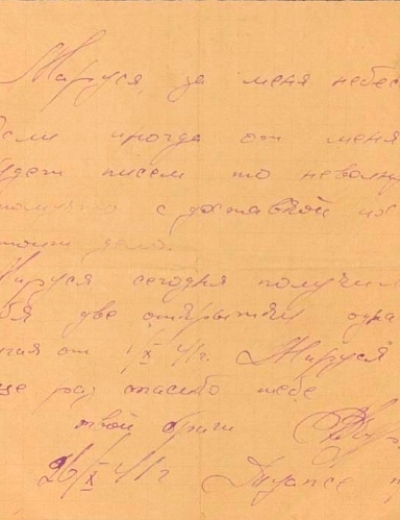 Маруся, за меня небес
если иногда от меня
будет писем то неволну
с доставкой их
дело.
Маруся сегодня получил
две открытки одна
от 1/X 41г. Маруся
еще раз спасибо тебе
твой
26/X 41г Туапсе